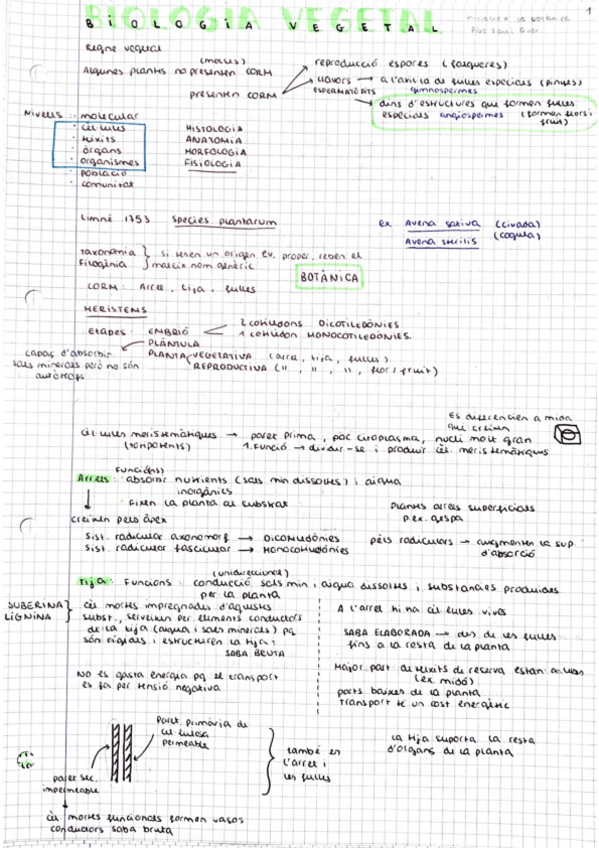 1
BIOLOGIA VEGETAL
Regne vegetal
(molses)
Algunes plantes no presenten CORM
presenten CORM
reproducció espores (falgueres)
llavors → a l'axil·la de fulles especials (pinyes)
ESPERMATÒFITS gimnospermes
dins d'estructures que formen fulles
especials angiospermes (formen flors i
fruit)
Nivells: · molecular
· cèl·lules HISTOLOGIA
· teixits ANATOMIA
· òrgans MORFOLOGIA
· organismes FISIOLOGIA
· població
· comunitat
Linné 1753 Species plantarum
ex. Avena sativa (civada)
Avena sterilis (cogula)
Taxonomia } si tenen un origen ev. proper, reben el
Filogènia mateix nom genèric
BOTÀNICA
CORM: Arrel, tija, fulles
MERISTEMS
etapes: EMBRIÓ
2 cotiledons DICOTILEDÒNIES
1 cotiledon MONOCOTILEDÒNIES.
PLÀNTULA
capaç d'absorbir
sals minerals però no són
autòtrofs
PLANTA VEGETATIVA (arrel, tija, fulles)
REPRODUCTIVA (", ", ", flor/fruit)
Es diferencien a mida
que creixen
cèl·lules meristemàtiques → paret prima, poc citoplasma, nucli molt gran
(totipotents) 1. Funció → dividir-se i produir cèl. meristemàtiques
Funció(ns)
Arrels: absorbir nutrients (sals min dissoltes) i aigua
inorgànics
· Fixen la planta al substrat
Plantes arrels superficials
p.ex. gespa
creixen pel àpex
Sist. radicular axonomorf → DICOTILEDÒNIES
Sist. radicular fascicular → MONOCOTILEDÒNIES
pèls radiculars → augmenten la sup.
d'absorció
(unidireccional)
Tija: Funcions: conducció sals min i aigua dissoltes i substàncies produides
per la planta
SUBERINA
LIGNINA
cèl mortes impregnades d'aquestes
subst., serveixen per elements conductors
de la tija (aigua i sals minerals) pq
són rígids i estructuren la tija:
SABA BRUTA
NO es gasta energia pq el transport
es fa per tensió negativa
A l'arrel hi ha cèl·lules vives
SABA ELABORADA → des de les fulles
fins a la resta de la planta
Major part de teixits de reserva estan
(ex midó)
parts baixes de la planta
Transport té un cost energètic
Paret primària de
cel·lulosa
permeable
paret sec.
impermeable
també en
l'arrel i
les fulles
La tija suporta la resta
d'òrgans de la planta
cèl. mortes funcionals formen vasos
conductors saba bruta